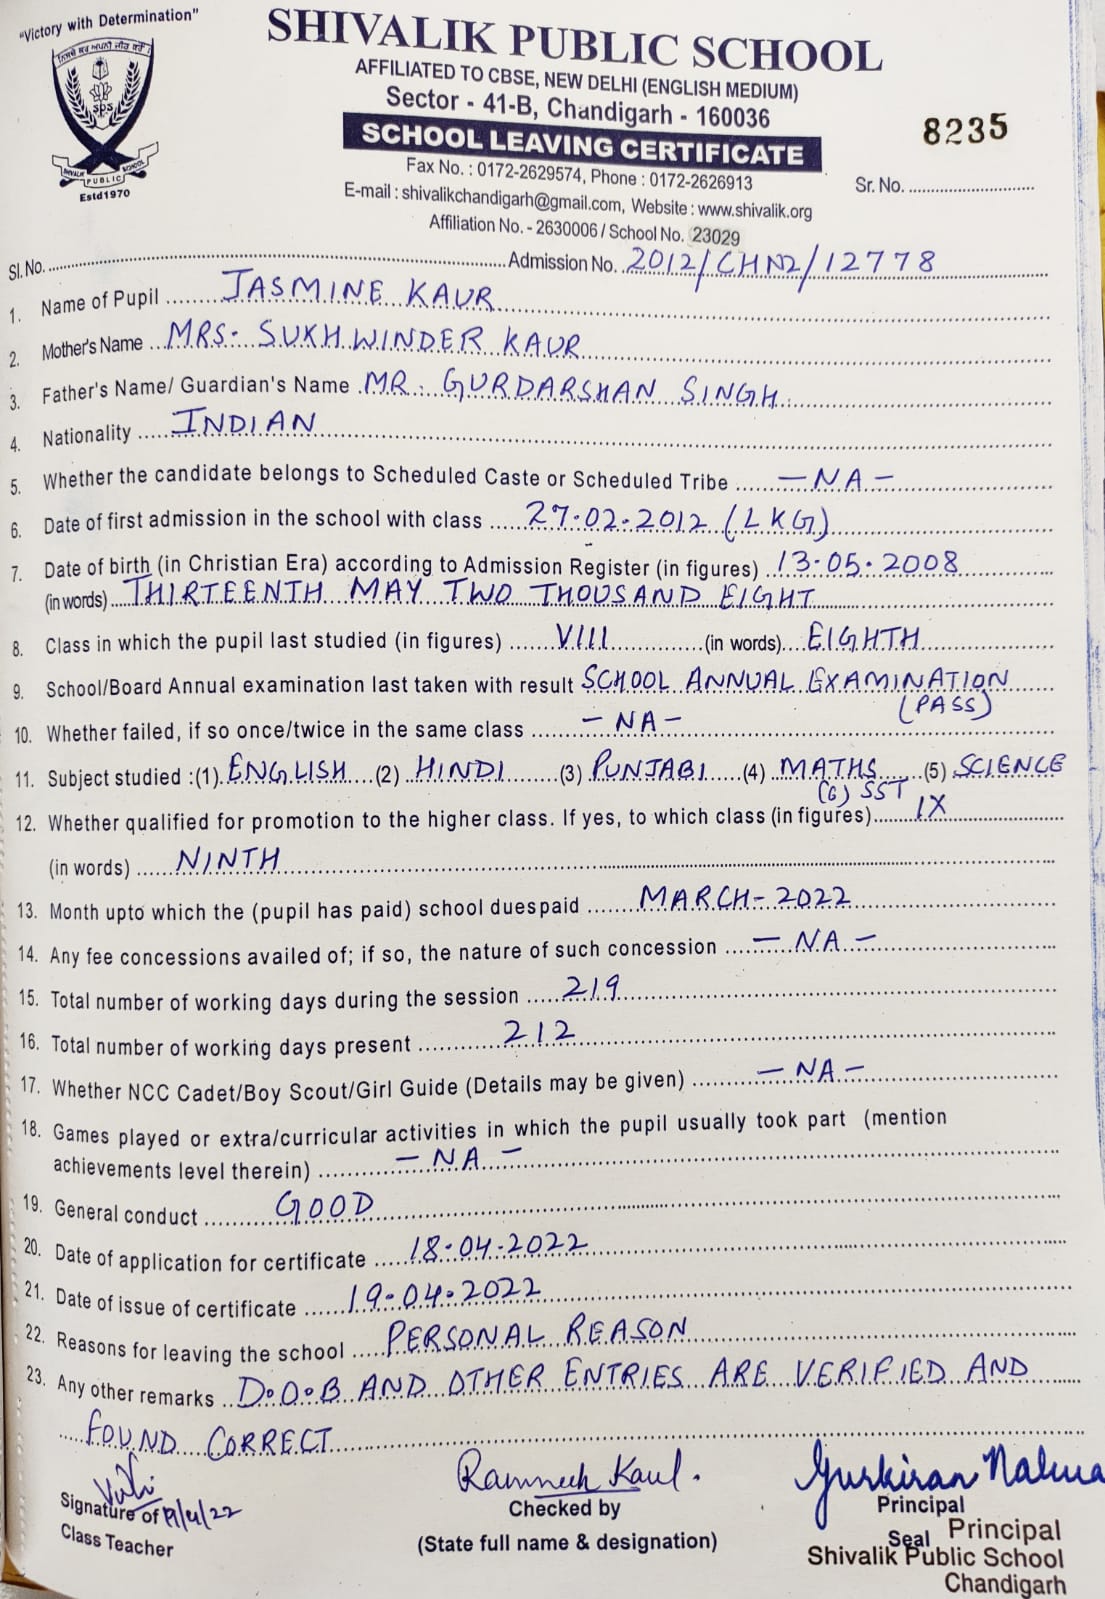 "Victory with Determination"
ਨਿਸਚੈ ਕਰ ਅਪਨੀ ਜੀਤ ਕਰੋਂ
SPS
SHIVALIK PUBLIC SCHOOL
Estd1970
SHIVALIK PUBLIC SCHOOL
AFFILIATED TO CBSE, NEW DELHI (ENGLISH MEDIUM)
Sector - 41-B, Chandigarh - 160036
SCHOOL LEAVING CERTIFICATE
8235
Fax No. : 0172-2629574, Phone : 0172-2626913
Sr. No. ..............................
E-mail : shivalikchandigarh@gmail.com, Website : www.shivalik.org
Affiliation No. - 2630006 / School No. 23029
Sl. No. ..............................Admission No. 2012/CHN2/12778
1. Name of Pupil ........JASMINE KAUR
2. Mother's Name ...MRS. SUKHWINDER KAUR
3. Father's Name/ Guardian's Name .MR. GURDARSHAN SINGH
4. Nationality .....INDIAN
5. Whether the candidate belongs to Scheduled Caste or Scheduled Tribe ......– NA –
6. Date of first admission in the school with class .....27.02.2012 (LKG)
7. Date of birth (in Christian Era) according to Admission Register (in figures) .13.05.2008
(in words)....THIRTEENTH MAY TWO THOUSAND EIGHT
8. Class in which the pupil last studied (in figures) .......VIII............(in words)....EIGHTH
9. School/Board Annual examination last taken with result SCHOOL ANNUAL EXAMINATION
(PASS)
10. Whether failed, if so once/twice in the same class ........– NA –
11. Subject studied :(1).ENGLISH...(2)..HINDI.......(3).PUNJABI.....(4)..MATHS......(5).SCIENCE
(6) SST
12. Whether qualified for promotion to the higher class. If yes, to which class (in figures).......IX
(in words) ......NINTH
13. Month upto which the (pupil has paid) school duespaid .......MARCH-2022
14. Any fee concessions availed of; if so, the nature of such concession ....– NA –
15. Total number of working days during the session .....219
16. Total number of working days present ............212
17. Whether NCC Cadet/Boy Scout/Girl Guide (Details may be given) .........– NA –
18. Games played or extra/curricular activities in which the pupil usually took part (mention
achievements level therein) ...........– NA –
19. General conduct ..........GOOD
20. Date of application for certificate ....18.04.2022
21. Date of issue of certificate ......19.04.2022
22. Reasons for leaving the school .....PERSONAL REASON
23. Any other remarks ..D.O.B AND OTHER ENTRIES ARE VERIFIED AND
FOUND CORRECT
Ramneek Kaul.
Gurkiran Nalwa
Signature of 19/4/22
Class Teacher
Checked by
(State full name & designation)
Principal
Seal
Principal
Shivalik Public School
Chandigarh